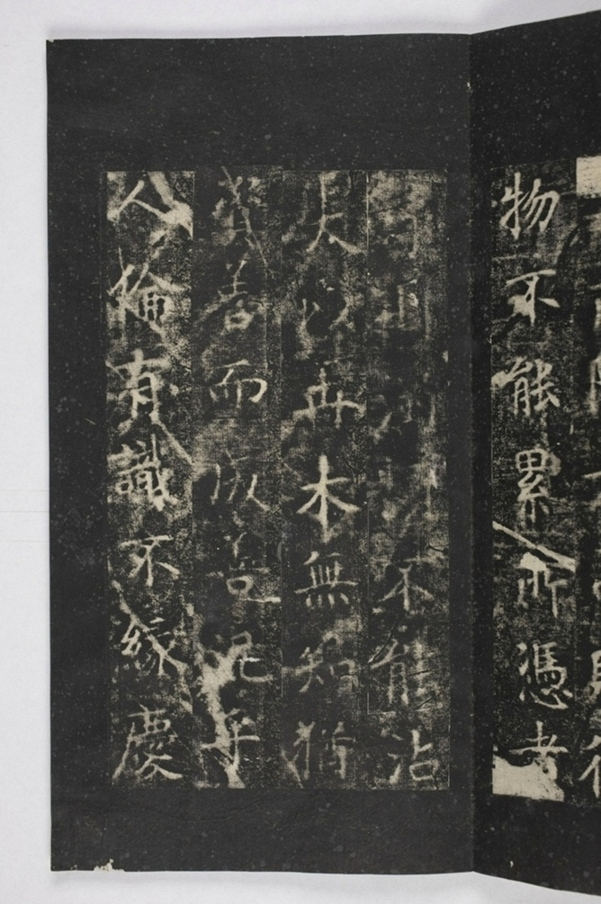 物不能累所憑者
不能沾
夫以卉木無知猶
資善而成善況乎
人倫有識不緣慶